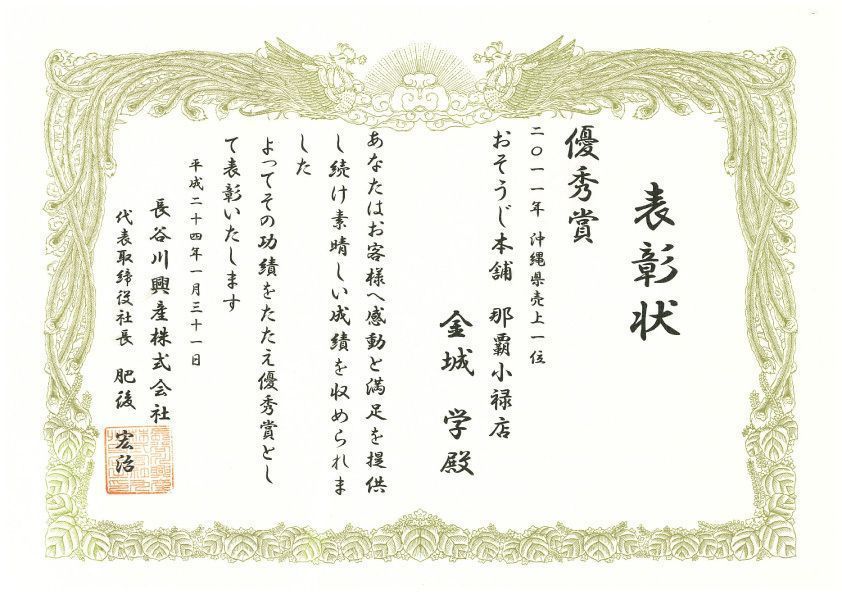 表彰状
優秀賞
二〇一一年 沖縄県売上一位
おそうじ本舗 那覇小禄店
金城 学殿
あなたはお客様へ感動と満足を提供
し続け素晴しい成績を収められま
した
よってその功績をたたえ優秀賞とし
て表彰いたします
平成二十四年一月三十一日
長谷川興産株式会社
代表取締役社長 肥後 宏治